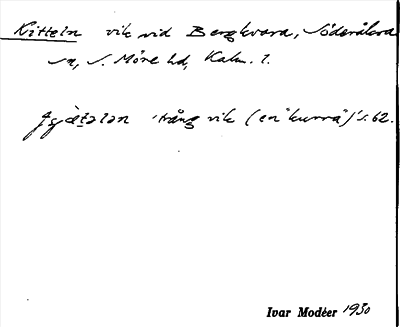 Kitteln vik vid Bergkvara, Söderåkra
sn, S. Möre hd, Kalm. l.
trång vik (en "kurra") s. 62.
Ivar Modéer 1930